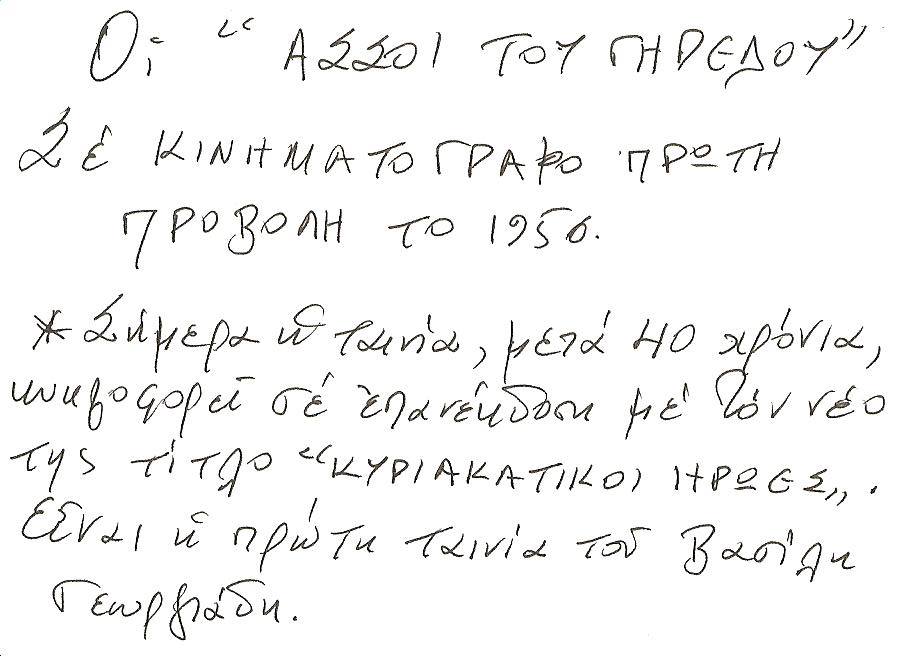 Οἱ "ΑΣΣΟΙ ΤΟΥ ΓΗΠΕΔΟΥ"
Σέ ΚΙΝΗΜΑΤΟΓΡΑΦΟ ΠΡΩΤΗ
ΠΡΟΒΟΛΗ ΤΟ 1956.
* Σήμερα ἡ ταινία, μετά 40 χρόνια,
κυκλοφορεῖ σέ ἐπανέκδοση μέ τόν νέο
της τίτλο "ΚΥΡΙΑΚΑΤΙΚΟΙ ΗΡΩΕΣ".
Εἶναι ἡ πρώτη ταινία τοῦ Βασίλη
Γεωργιάδη.